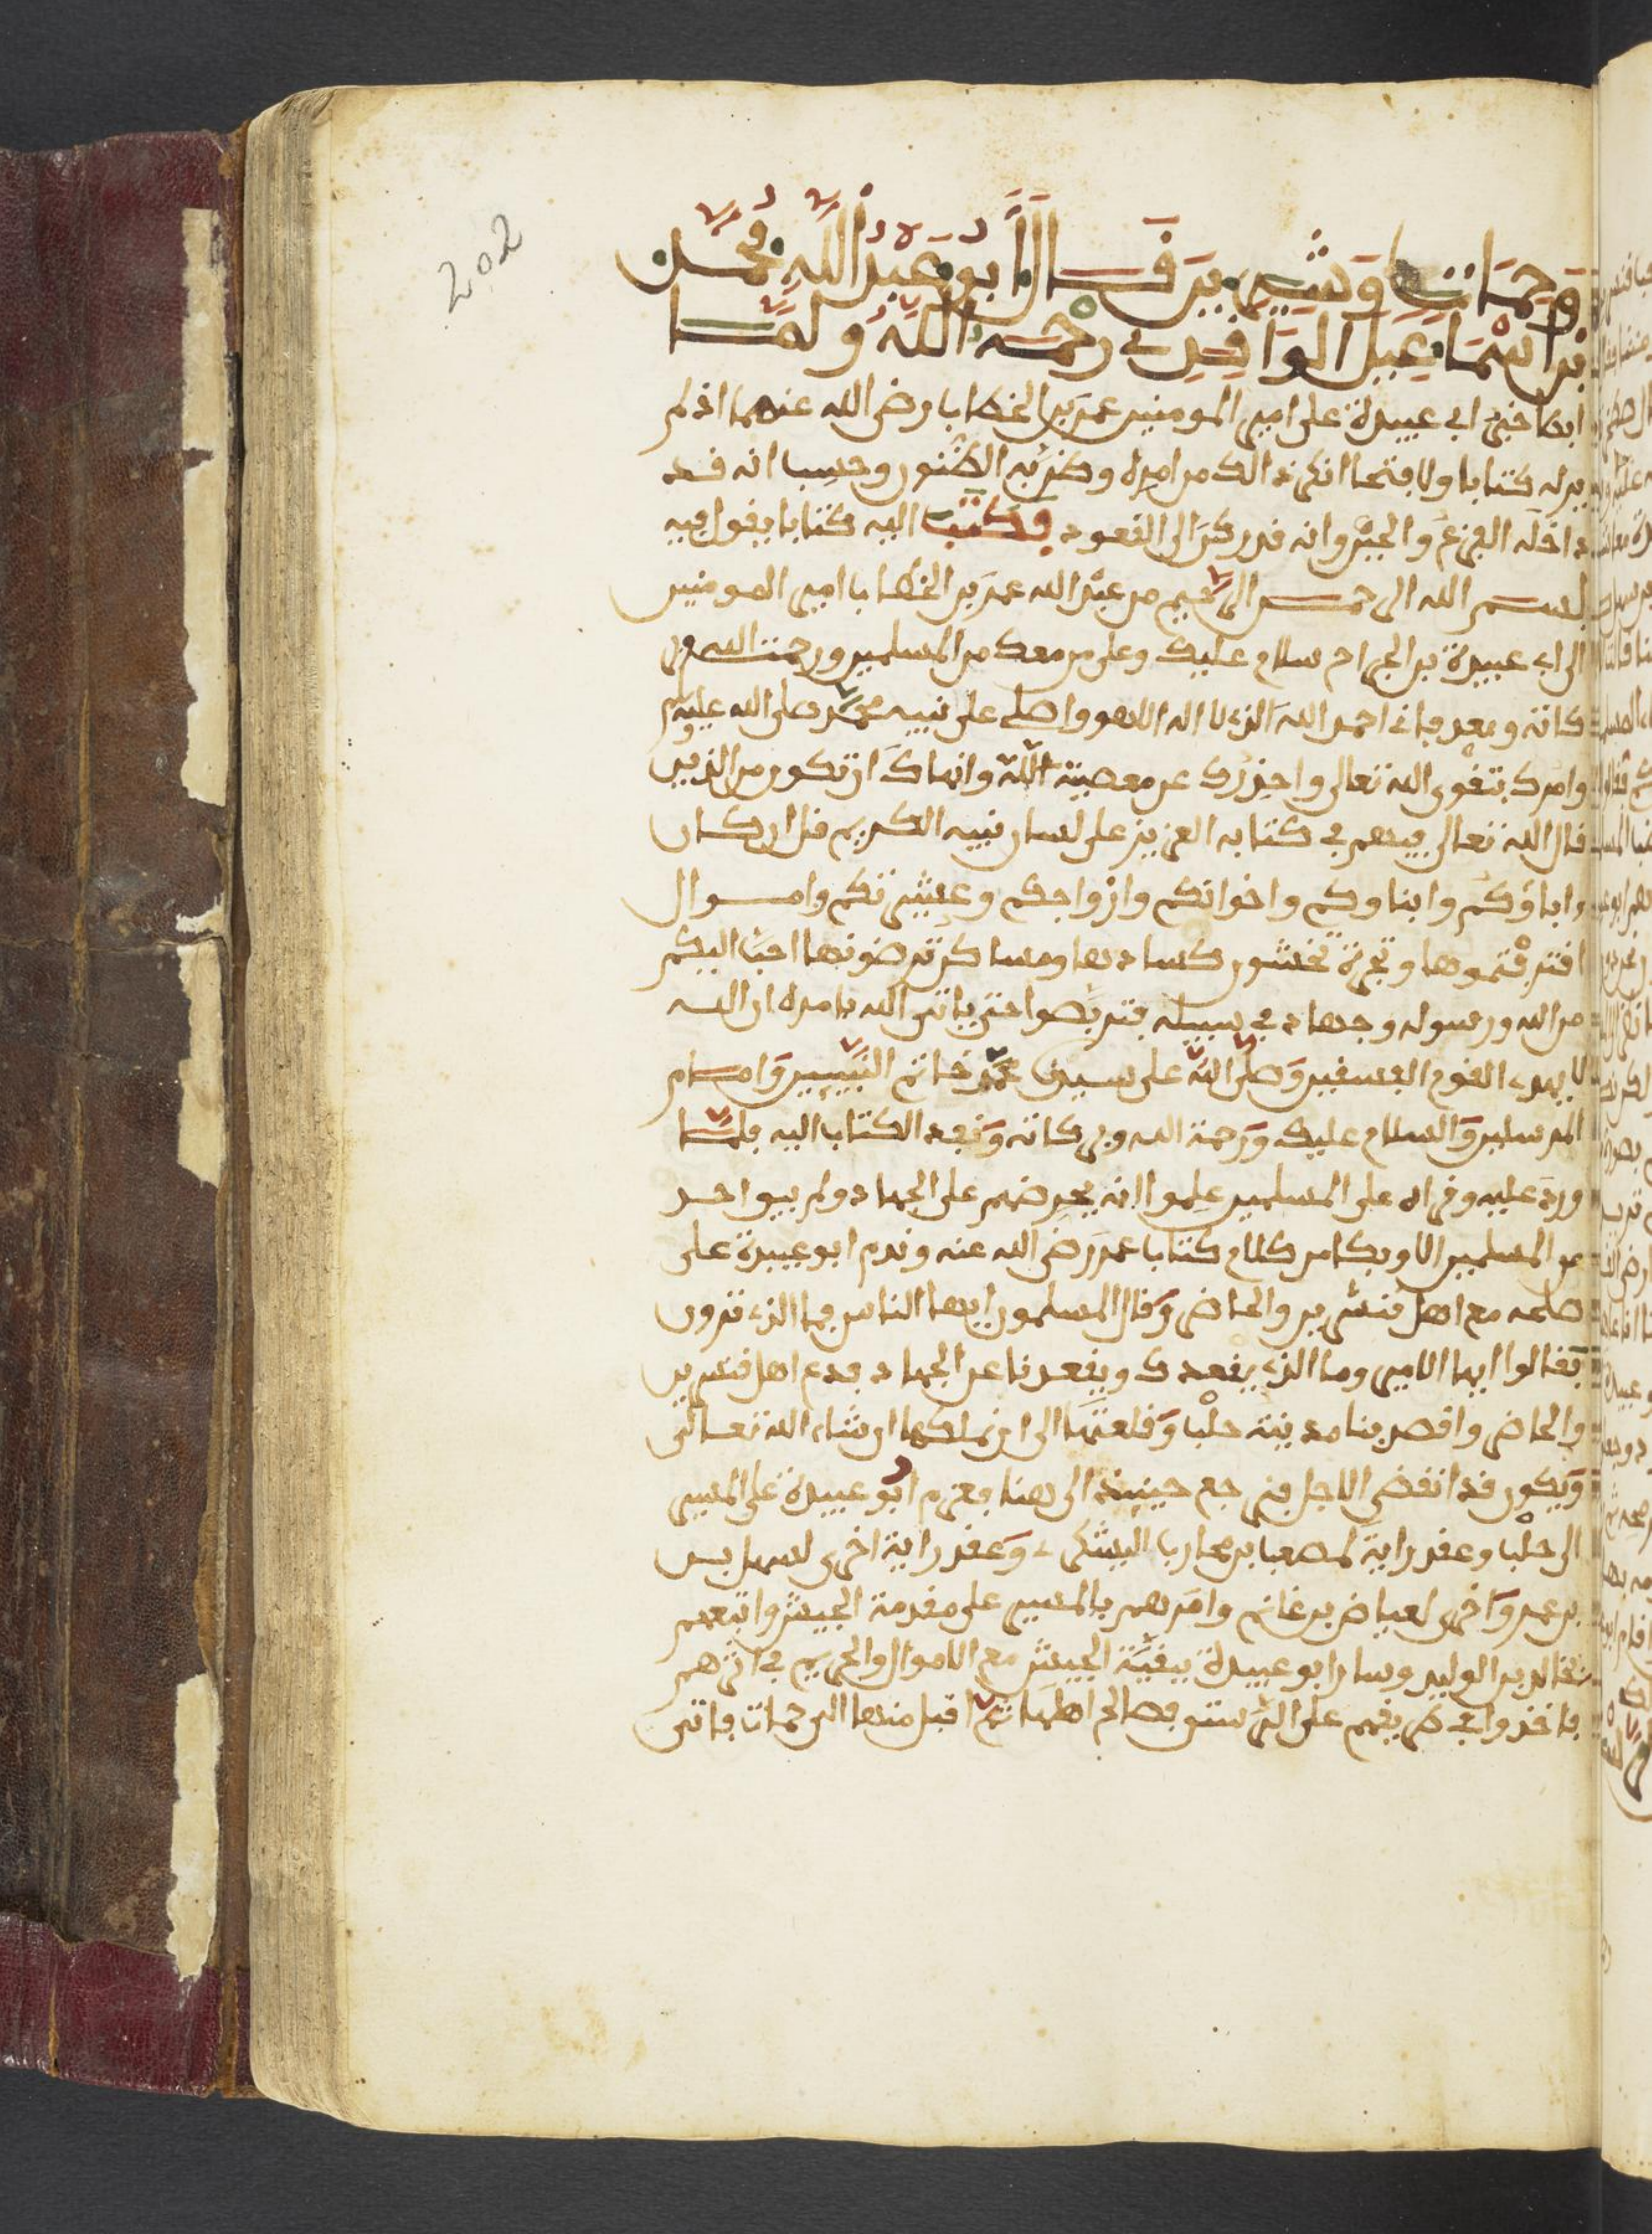 202
وحماة وشيزر قال أبو عبد الله محمد
بن اسماعيل الواقدي رحمه الله ولما
ابطا خبر ابي عبيدة على امير المومنين عمر بن الخطاب رضي الله عنهما اذ لم
ير له كتابا ولا فتحا انكر ذالك من امره وظن به الظنون وحسب انه قد
داخله الفزع والجبن وانه قد ركن الى القعود فكتب اليه كتابا يقول فيه
بسم الله الرحمن الرحيم من عبد الله عمر بن الخطاب امير المومنين
الى ابي عبيدة بن الجراح سلام عليك وعلى من معك من المسلمين ورحمت الله وبر
كاته وبعد فاني احمد الله الذي لا اله الا هو واصلي على نبيه محمد صلى الله عليه وسلم
وامرك بتقوى الله تعالى واحذرك عن معصية الله وانهاك ان تكون من الذين
قال الله تعالى فيهم في كتابه العزيز على لسان نبيه الكريم قل ان كان
اباؤكم وابناوكم واخوانكم وازواجكم وعشيرتكم واموال
اقترفتموها وتجرة تخشون كسادها ومساكن ترضونها احب اليكم
من الله ورسوله وجهاد في سبيله فتربصوا حتى ياتي الله بامره ان الله
لا يهدي القوم الفسقين وصلى الله على سيدنا محمد خاتم النبيين وامام
المرسلين والسلام عليك ورحمة الله وبركاته ونفد الكتاب اليه فلما
ورد عليه وقراه على المسلمين علموا انه يحرضهم على الجهاد ولم يبق احد
من المسلمين الا وبكا من كلام كتاب عمر رضي الله عنه وندم ابو عبيدة على
صلحه مع اهل قنسرين والحاضر وقال المسلمون ايها الناس فما الذي ترون
فقالوا ايها الامير وما الذي يقعدك ويقعدنا عن الجهاد فدع اهل قنسرين
والحاضر واقصد بنا مدينة حلب وقلعتها الى ان نملكها ان شاء الله تعالى
ويكون قد انقضى الاجل فنرجع حينئذ الى هنا فعزم ابو عبيدة على المسير
الى حلب وعقد راية لمصعب بن محارب اليشكري وعقد راية اخرى لسهل بن
بن عمر واخرى لعياض بن غانم وامرهم بالمسير على مقدمة الجيش واتبعهم
بخالد بن الوليد وسار ابو عبيدة ببقية الجيش مع الاموال والحريم في اثرهم
فاخذوا في طريقهم على الرستن فصالح اهلها ثم اقبل منها الى حمات فاتى